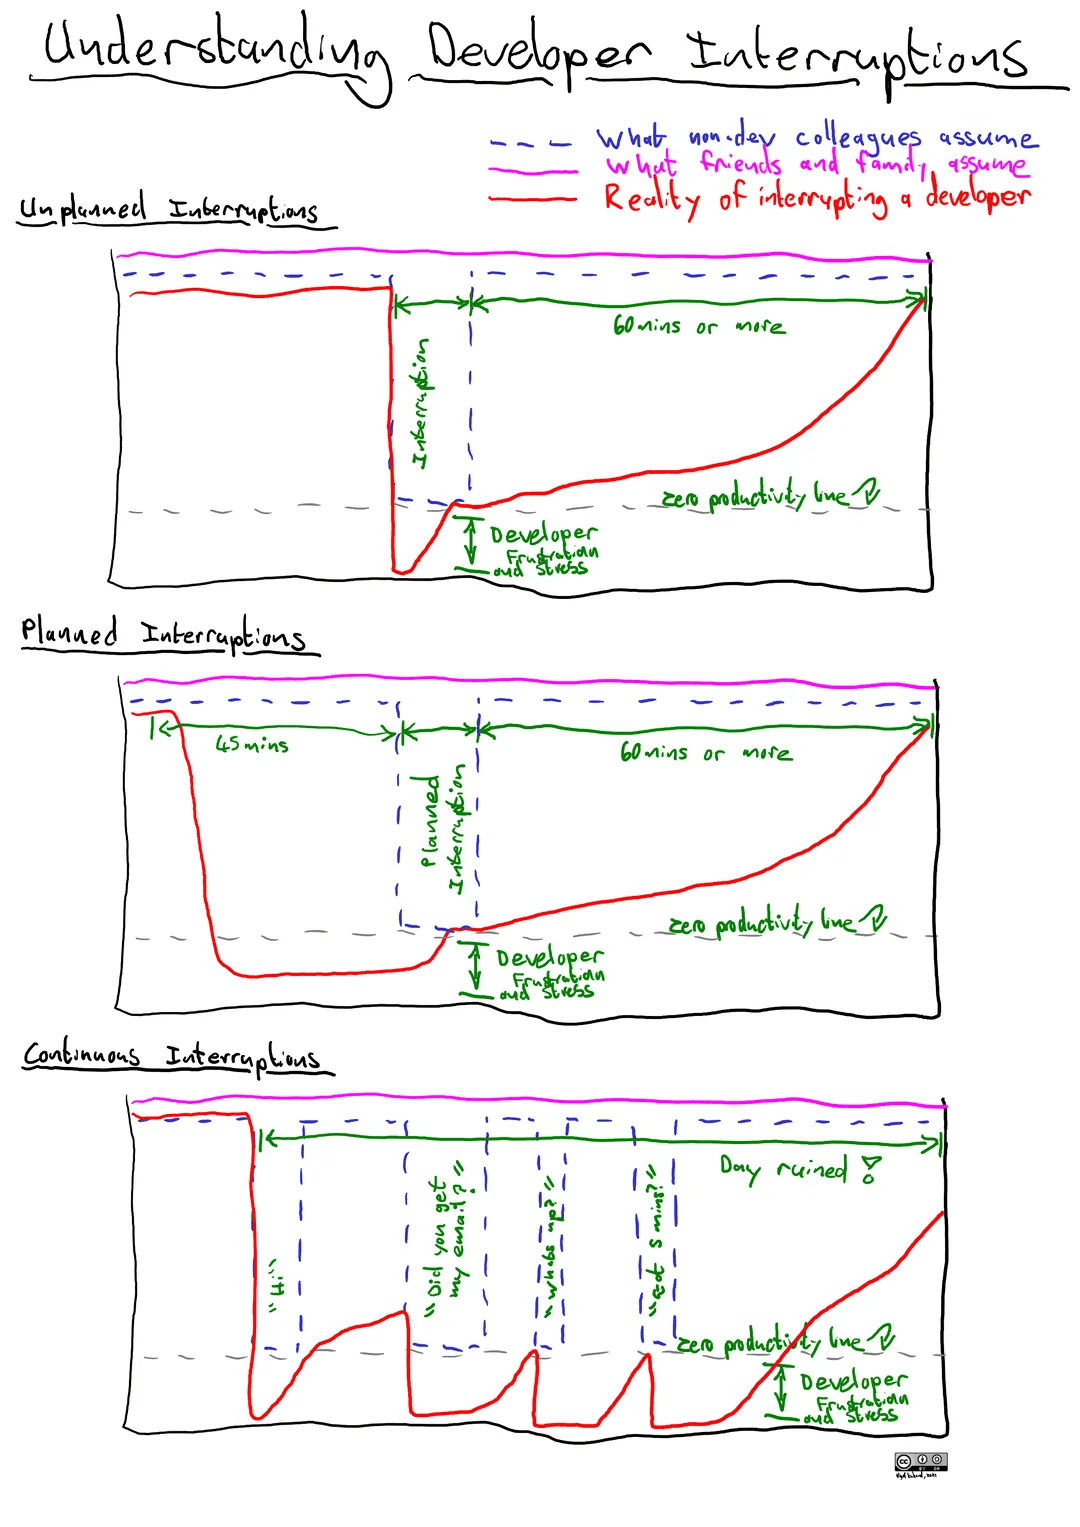 Understanding Developer Interruptions
What non-dev colleagues assume
What friends and family assume
Reality of interrupting a developer
Unplanned Interruptions
60mins or more
Interruption
zero productivity line
Developer
Frustration
and stress
Planned Interruptions
45mins
60mins or more
Planned
Interruption
zero productivity line
Developer
Frustration
and stress
Continuous Interruptions
Day ruined!
"Hi"
"Did you get
my email?"
"whats up?"
"got 5 mins?"
zero productivity line
Developer
Frustration
and stress
cc
BY